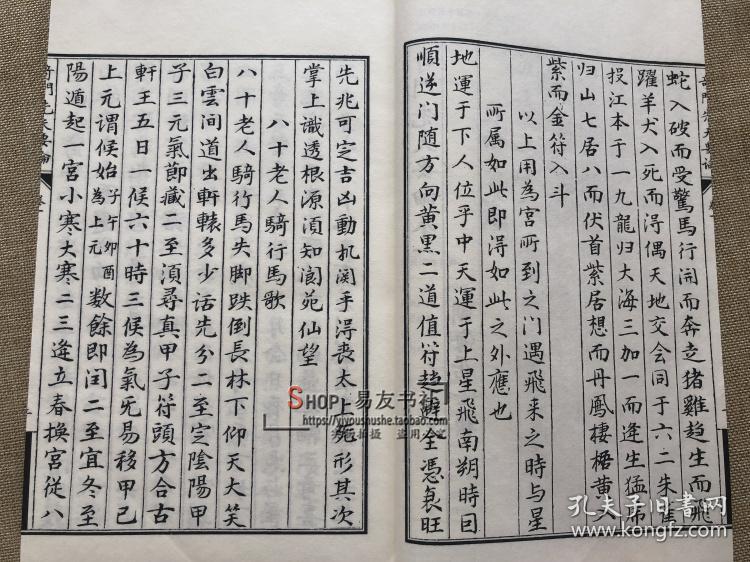 蛇入破而受驚馬行開而奔走猪雞趋生而飛
躍羊犬入死而得偶天地交会同于六二朱雀
投江本于一九龍归大海三加一而逢生猛帝
归山七居八而伏首紫居想而丹鳳棲梧黄入
紫而金符入斗
以上用為宮所到之门遇飛来之時与星
所属如此即得如此之外應也
地運于下人位乎中天運于上星飛南朔時日
順逆门随方向黄黑二道值符趋辨全憑衰旺
先兆可定吉凶動机関乎得丧太上
形其次
掌上識透根源湏知阆苑仙望
八十老人騎行馬歌
八十老人騎行馬失脚跌倒長林下仰天大笑
白雲间道出軒轅多少话先分二至定陰陽甲
子三元氣節藏二至湏尋真甲子符頭方合古
軒王五日一候六十時三候為氣旡易移甲己
上元谓候始子午卯酉為上元數餘即闰二至宜冬至
陽遁起一宮小寒大寒二三逢立春換宮従八
SHOP 易友书社
https://yiyoushushe.kongfz.com
实物拍摄 盗用必究
孔夫子旧書网
www.kongfz.com